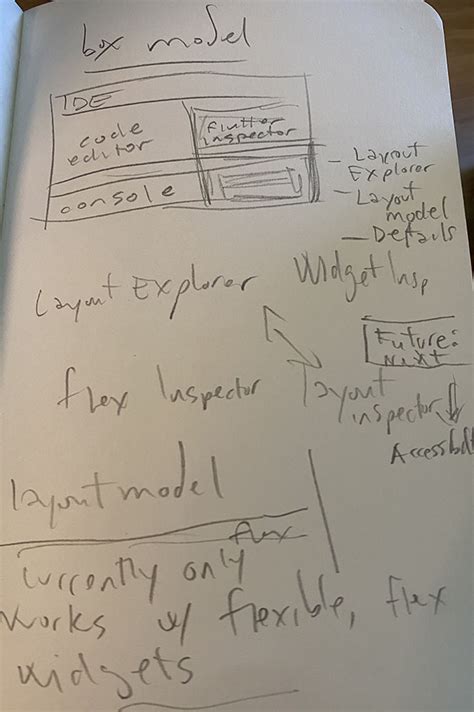 box model
IDE
code
editor
flutter
inspector
console
— Layout
Explorer
— Layout
model
— Details
Layout Explorer
Widget Insp
Future:
Next
flex Inspector
layout
inspector
Accessbilt
layout model
flex
Currently only
works w/ flexible, flex
widgets